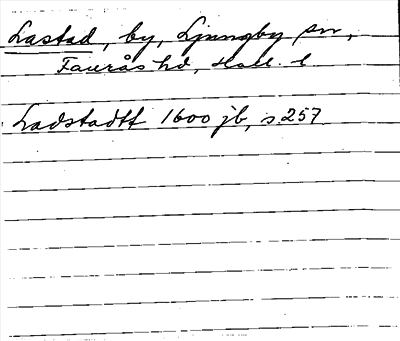 Lastad, by, Ljungby sn,
Faurås hd, Hall. l
Ladstadtt 1600 jb, s 257